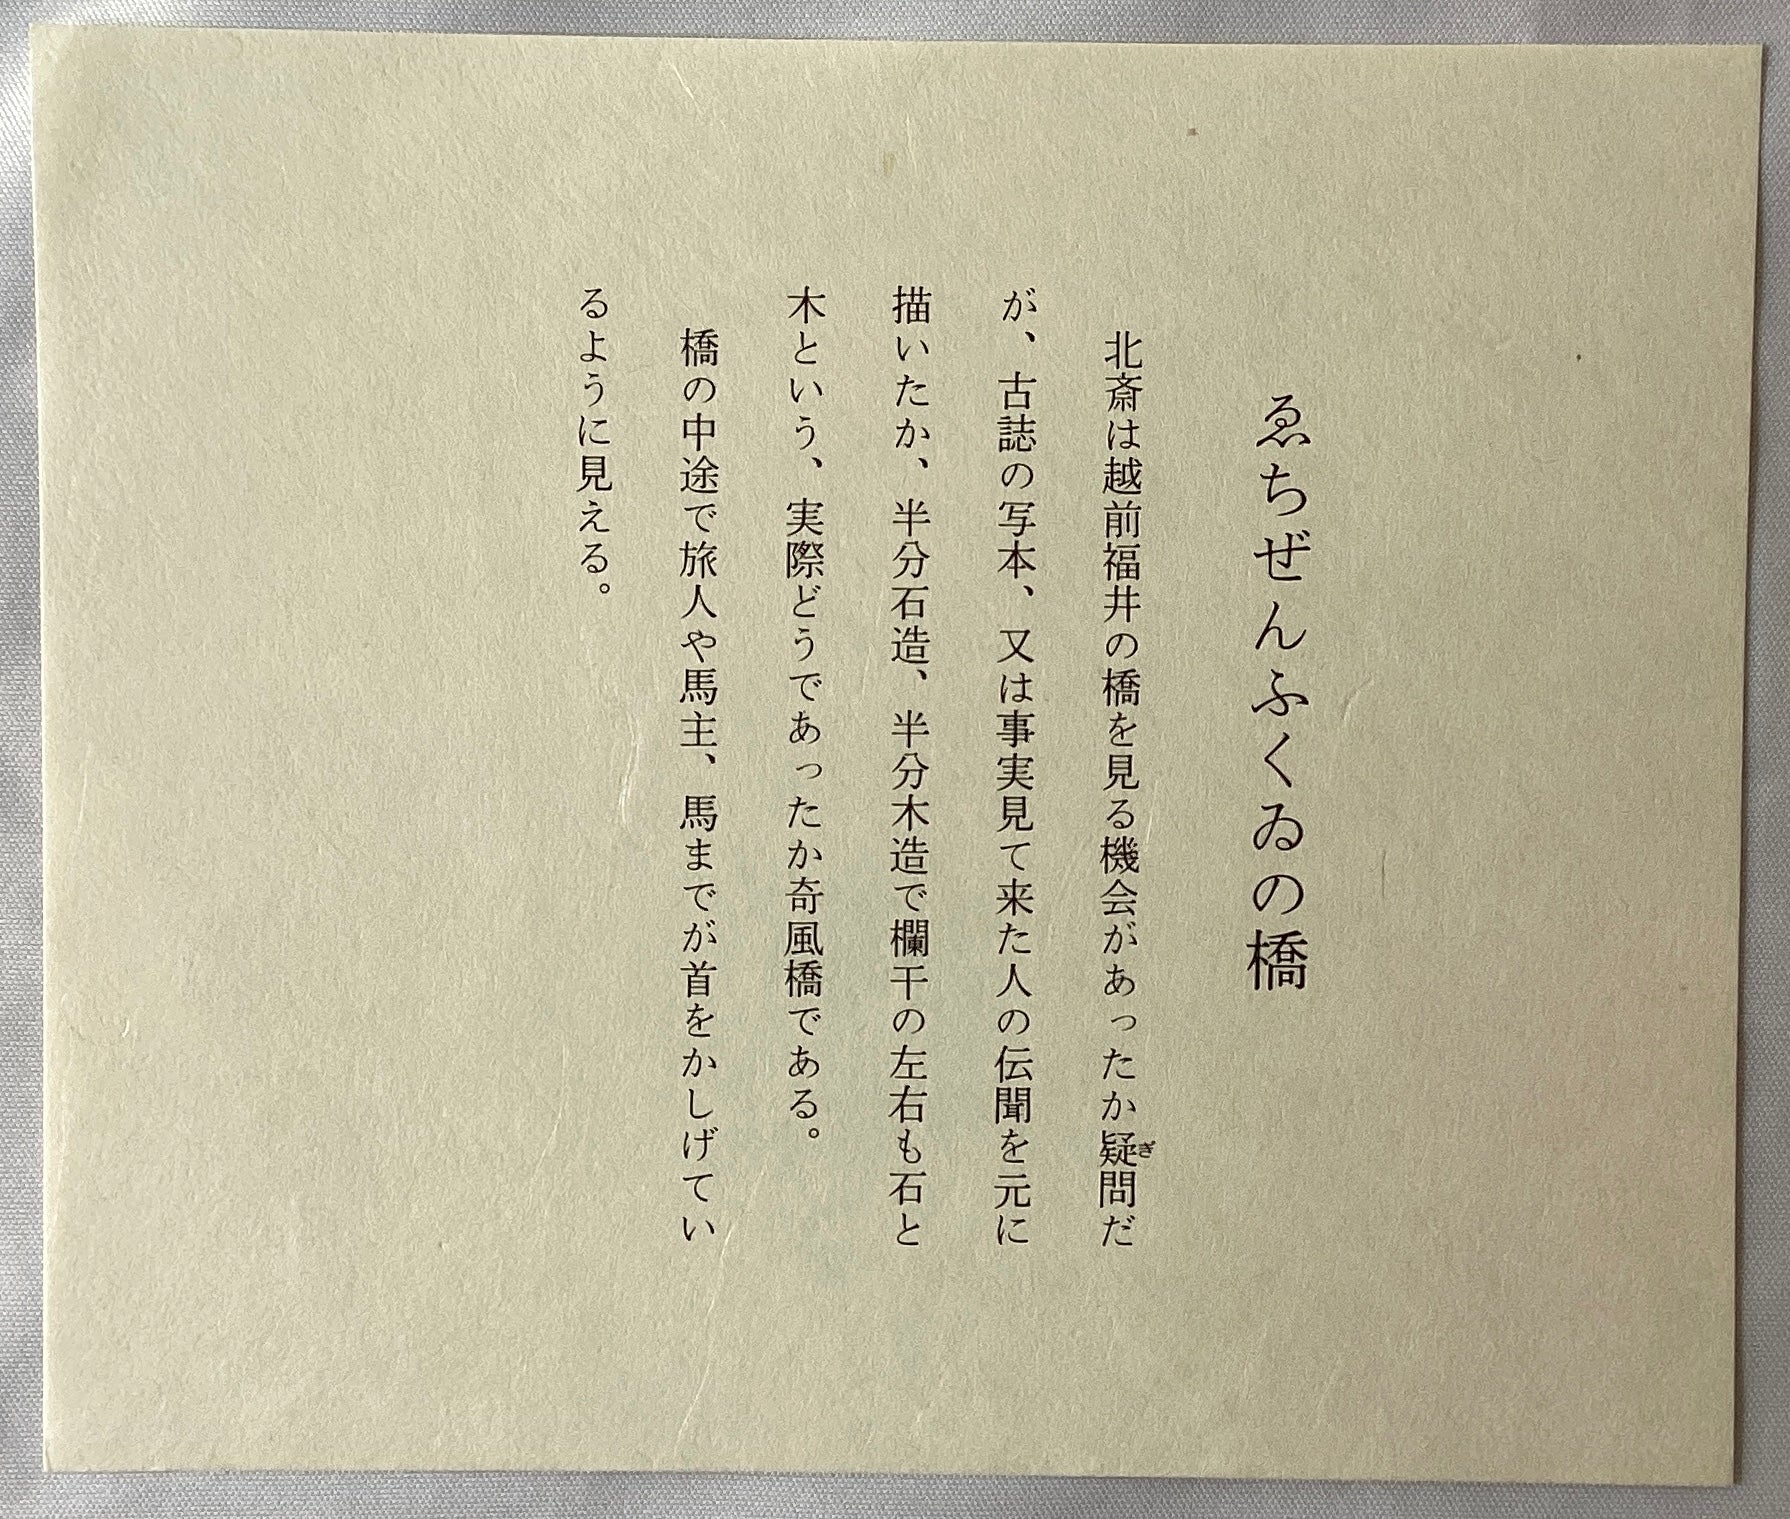 ゑちぜんふくゐの橋
北斎は越前福井の橋を見る機会があったか疑問だ
ぎ
が、古誌の写本、又は事実見て来た人の伝聞を元に
描いたか、半分石造、半分木造で欄干の左右も石と
木という、実際どうであったか奇風橋である。
橋の中途で旅人や馬主、馬までが首をかしげてい
るように見える。